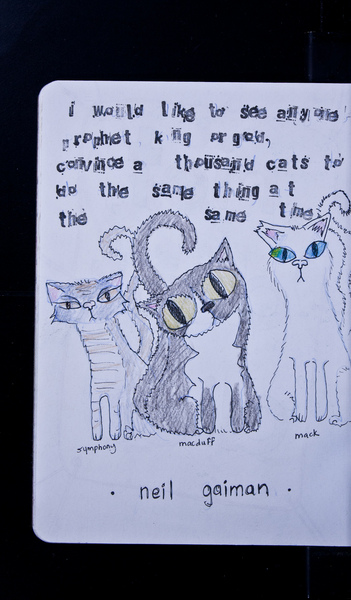 i would like to see anyone
prophet king or god,
convince a thousand cats to
do the same thing at
the same time
symphony
macduff
mack
· neil gaiman ·